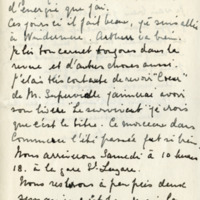 d'énergie que j'ai.
Ces jours ci il fait beau, je suis allée
à Windermere. Arthur va bien.
je lis ton carnet toujours dans la
revue et d'autres choses aussi.
J'étais très contente de revoir
de M. Supervielle j'aimerais avoir
son livre Le survivant je crois
que c'est le titre. Ce morceau dans
Commerce l'été passé fait si bien.
Nous arriverons Samedi à 10 heures
18. à la gare St-Lazare.
Nous restons à peu près deux